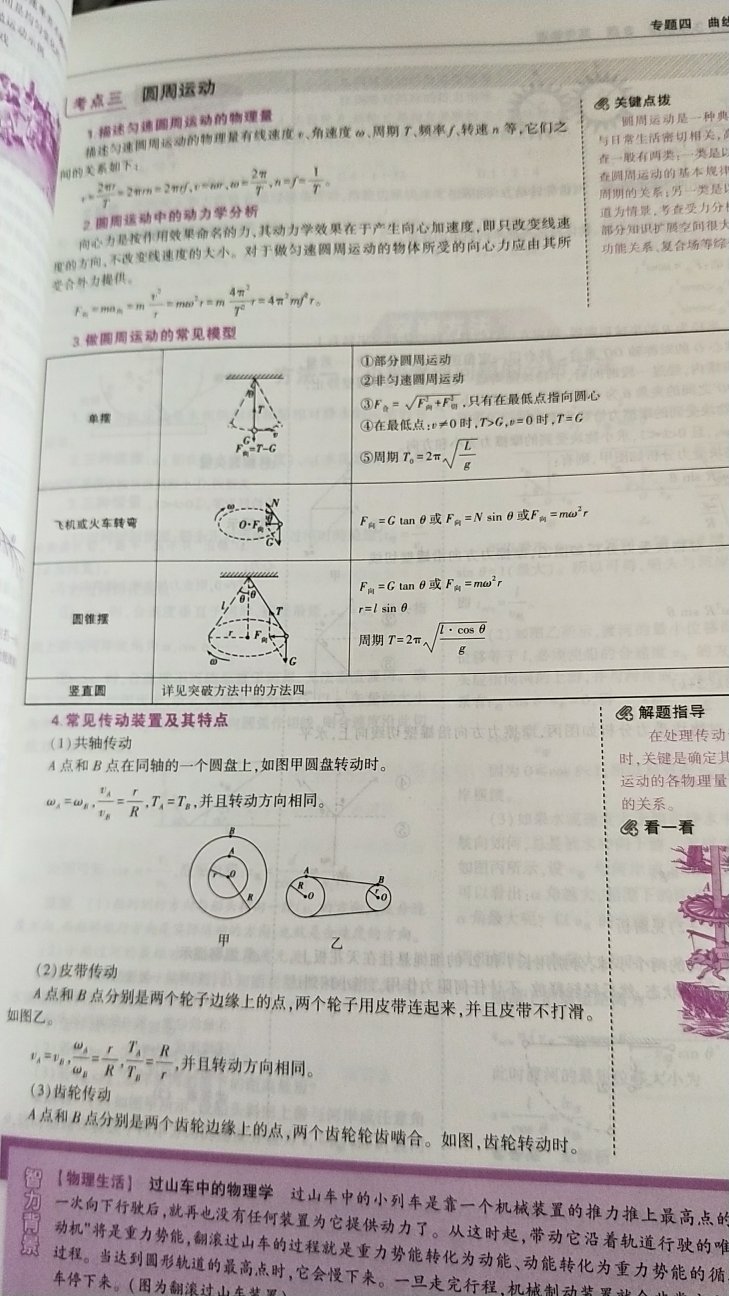 专题四 曲线
考点三 圆周运动
1.描述匀速圆周运动的物理量
描述匀速圆周运动的物理量有线速度 v、角速度 ω、周期 T、频率 f、转速 n 等,它们之
间的关系如下:
v=2πr/T=2πrn=2πrf,v=ωr,ω=2π/T,n=f=1/T。
2.圆周运动中的动力学分析
向心力是按作用效果命名的力,其动力学效果在于产生向心加速度,即只改变线速
度的方向,不改变线速度的大小。对于做匀速圆周运动的物体所受的向心力应由其所
受合外力提供。
F向=ma向=m v²/r=mω²r=m 4π²/T² r=4π²mf²r。
3.做圆周运动的常见模型
单摆
θ
T
G v
F向=T-G
①部分圆周运动
②非匀速圆周运动
③F合=√(F²向+F²切),只有在最低点指向圆心
④在最低点:v≠0时,T>G,v=0时,T=G
⑤周期 T₀=2π√(L/g)
飞机或火车转弯
ω N
O F向
G
F向=G tan θ 或 F向=N sin θ 或F向=mω²r
圆锥摆
θ θ
l T
r F向
ω G
F向=G tan θ 或 F向=mω²r
r=l sin θ
周期 T=2π√(l·cos θ/g)
竖直圆
详见突破方法中的方法四
4.常见传动装置及其特点
(1)共轴传动
A 点和 B 点在同轴的一个圆盘上,如图甲圆盘转动时。
ωA=ωB,vA/vB=r/R,TA=TB,并且转动方向相同。
B
A
r O
R
甲
A B
R O r O
乙
(2)皮带传动
A 点和 B 点分别是两个轮子边缘上的点,两个轮子用皮带连起来,并且皮带不打滑。
如图乙。
vA=vB,ωA/ωB=r/R,TA/TB=R/r,并且转动方向相同。
(3)齿轮传动
A 点和 B 点分别是两个齿轮边缘上的点,两个齿轮轮齿啮合。如图,齿轮转动时。
关键点拨
圆周运动是一种典
与日常生活密切相关,高
查一般有两类:一类是以
查圆周运动的基本规律
周期的关系;另一类是以
道为情景,考查受力分析
部分知识扩展空间很大
功能关系、复合场等综合
解题指导
在处理传动
时,关键是确定其
运动的各物理量
的关系。
看一看
智力背景
【物理生活】 过山车中的物理学 过山车中的小列车是靠一个机械装置的推力推上最高点的
一次向下行驶后,就再也没有任何装置为它提供动力了。从这时起,带动它沿着轨道行驶的唯
动机"将是重力势能,翻滚过山车的过程就是重力势能转化为动能、动能转化为重力势能的循
过程。当达到圆形轨道的最高点时,它会慢下来。一旦走完行程,机械制动装置就会非常
车停下来。(图为翻滚过山车装置)